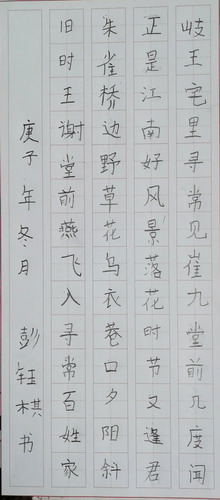 岐王宅里寻常见崔九堂前几度闻
正是江南好风景落花时节又逢君
朱雀桥边野草花乌衣巷口夕阳斜
旧时王谢堂前燕飞入寻常百姓家
庚子年冬月彭钰棋书